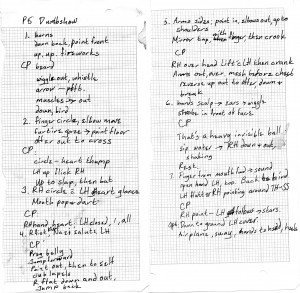 PS Dumbshow
1. horns
down back, point front
up, up. fireworks
CP beard
wiggle out, whistle
arrow - pfft.
muscles - out
down, kind
2. Finger circle, elbow move
furtive gaze → point floor
after out to cross
CP
circle - heart thump
LH up flick RH
Up to slap, then bat
3. RH circle = LH heart glance
Mouth pop - dart
CP
RH and heart. LH closed, !, all
4. Nazi salute LH
CP
Frog belly
Jump forward
Point out, then to self
club lapels
R flat down and out,
Jump back
5. Arms sides; point in, elbows out, up to
shoulders
Mirror tap, with finger then crook
CP
RH over head Lift c LH then crank
Arms out, over, mesh before chest
reverse up out to after down +
break
6. horns scalp → ears → wiggle
strobe in front of hairs
CP
That's a heavy invisible ball
sip water → RH down + out,
shaking
Rest
7. Finger from mouth → sound
open hand LH, too. Back to
LH Hold RH pointing around
CP
RH point - LH follows → stars.
Down to ground LH cover.
Airplane, sways, hands to